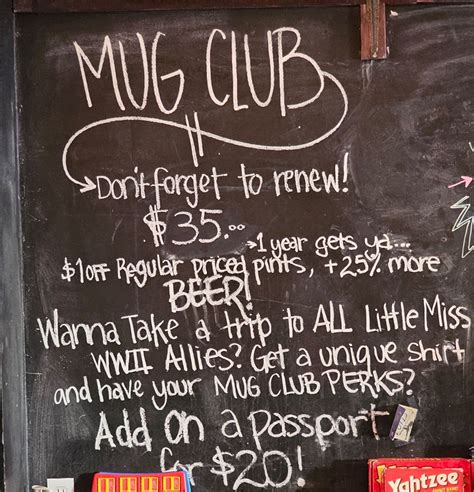 MUG CLUB
Don't forget to renew!
$35.00
1 year gets ya...
$1 off Regular priced pints, + 25% more
BEER!
Wanna Take a trip to ALL Little Miss
WWII Allies? Get a unique shirt
and have your MUG CLUB PERKS?
Add On a passport
for $20!
Yahtzee